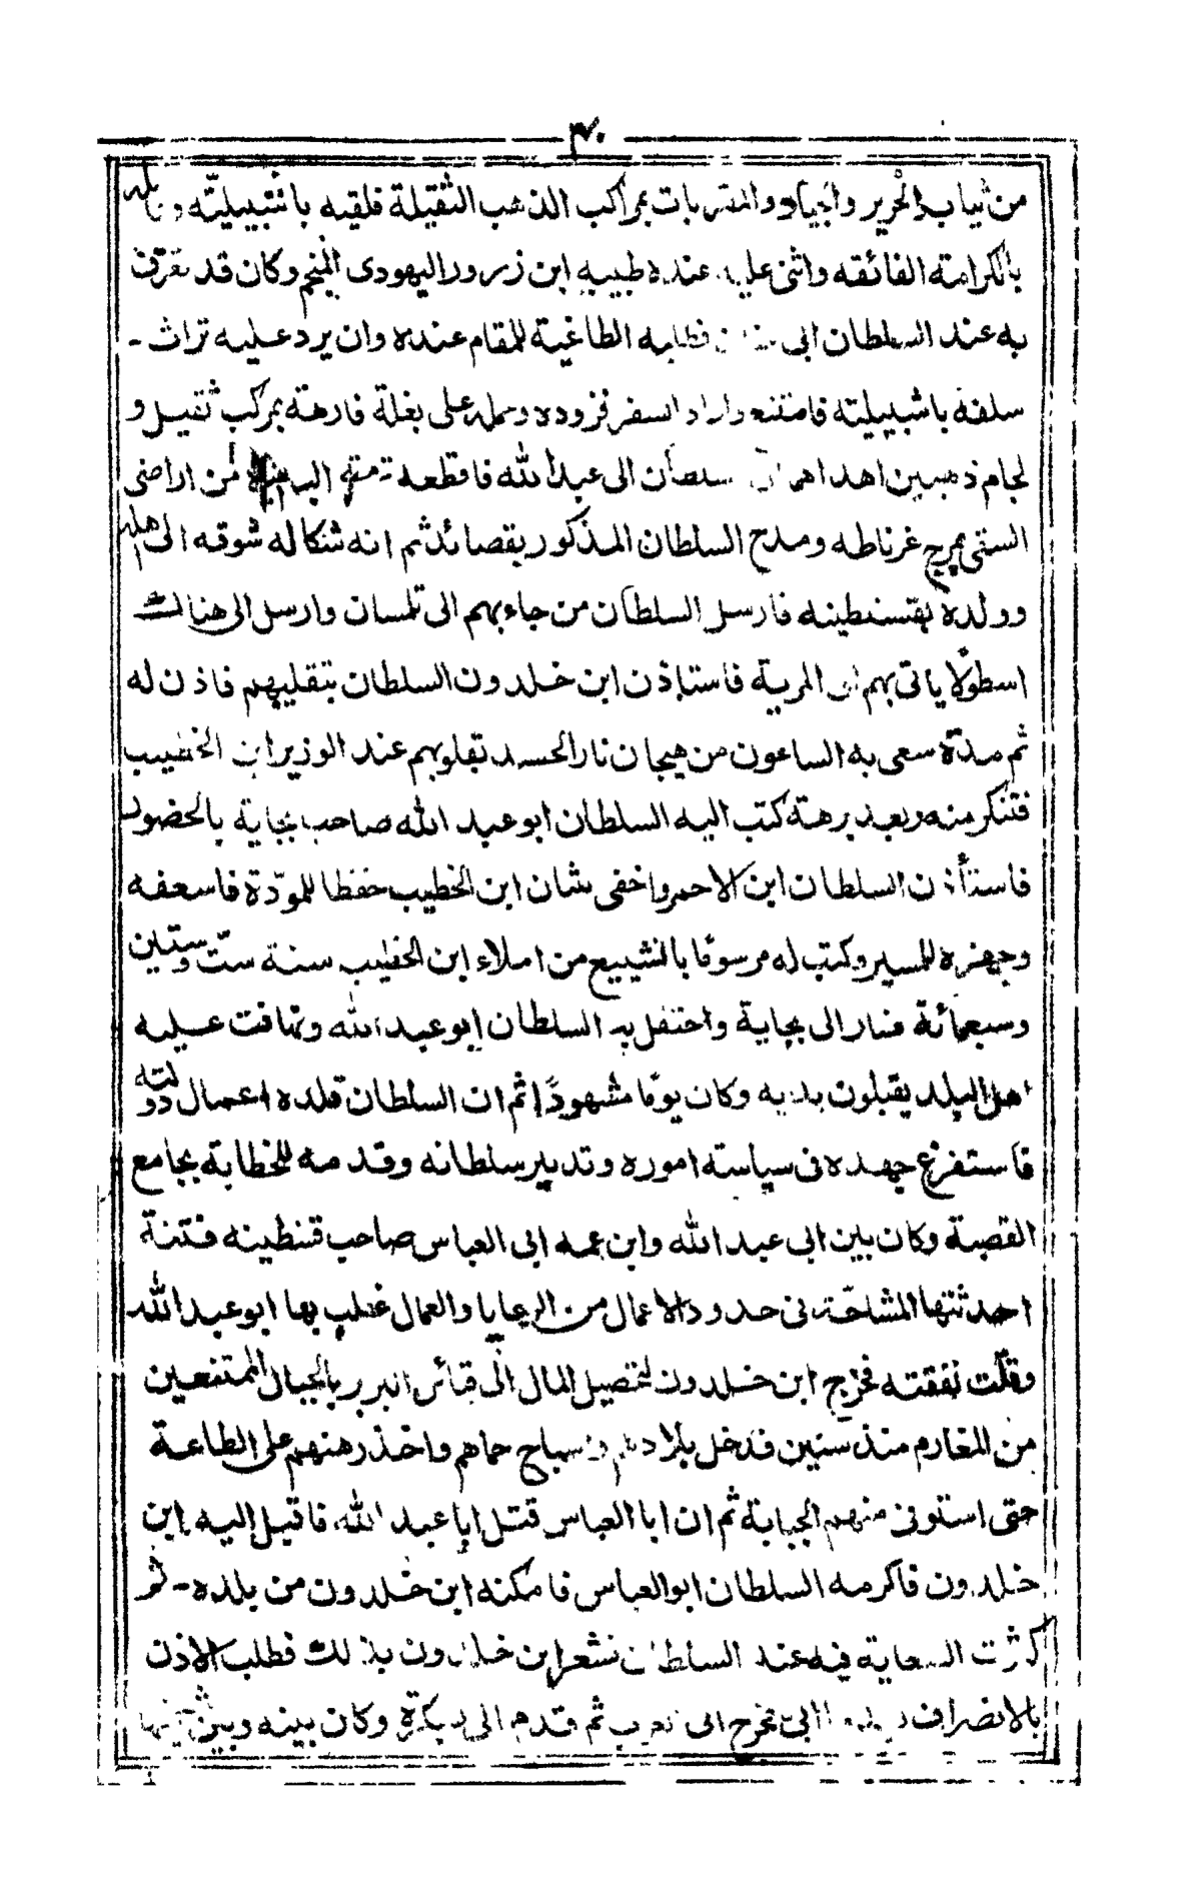 ٣٠
من ثياب الحرير والجياد والمقربات بمراكب الذهب الثقيلة فلقيه باشبيليّته
بالكرامته الفائقه واثنى عليه عنده طبيبه ابن زرور اليهودى المنجم وكان قد تعرّف
به عند السلطان ابى فطلبه الطاغية للمقام عنده وان يرد عليه تراث -
سلفه باشبيليته فامتنع واراد السفر فزوده وحمله على بغلة فارهته بمركب ثقيل و
لجام ذهبيين اهداهما سلطان الى عبد الله فاقطعه من اراضى
السقى بمرج غرناطه ومدح السلطان المذكور بقصائد ثم انه شكا له شوقه الى اهله
وولده بقسنطينه فارسل السلطان من جاء بهم الى تلمسان وارسل الى هنالك
اسطولًا ياتى بهم الى المرية فاستاذن ابن خلدون السلطان بتقليهم فاذن له
ثم مدّة سعى به الساعون من هيجان نار الحسد بقلوبهم عند الوزير ابن الخطيب
فتنكر منه وبعد برهة كتب اليه السلطان ابو عبد الله صاحب بجاية بالحضور
فاستأذن السلطان ابن الاحمر واخفى شان ابن الخطيب حفظا للمودّة فاسعفه
وجهزه للمسير وكتب له مرسومًا بالتشييع من املاء ابن الخطيب سنة ستّ وستين
وسبعمائة فسار الى بجاية واحتفل به السلطان ابو عبد الله وتهافت عليه
اهل البلد يقبلون يديه وكان يومًا مشهودًا ثم ان السلطان قلده اعمال دولته
فاستفرغ جهده فى سياسته اموره وتدبير سلطانه وقدمه للخطابة بجامع
القصبة وكان بين ابى عبد الله وابن عمه ابى العباس صاحب قنطينه فتنة
احدثتها المشاحّة فى حدود الاعمال من الرعايا والعمال غلب بها ابو عبد الله
وقلّت نفقته فخرج ابن خلدون لتحصيل المال الى قبائل البربر بالجبال الممتنعين
من المغارم منذ سنين فدخل بلادهم واسباح حماهم واخذ رهنهم على الطاعة
حتى استوفى منهم الجباية ثم ان ابا العباس قتل ابا عبد الله فاقبل اليه ابن
خلدون فاكرمه السلطان ابو العباس فامكنه ابن خلدون من بلده - ثم
كثرت السعاية فيه عند السلطان فشعر ابن خلدون بذلك فطلب الاذن
بالانصراف فخرج الى ثم قدم الى بسكرة وكان بينه وبين